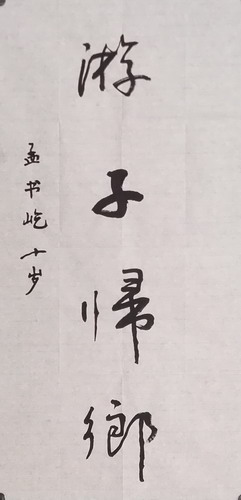 游子歸鄉
孟书屹十岁